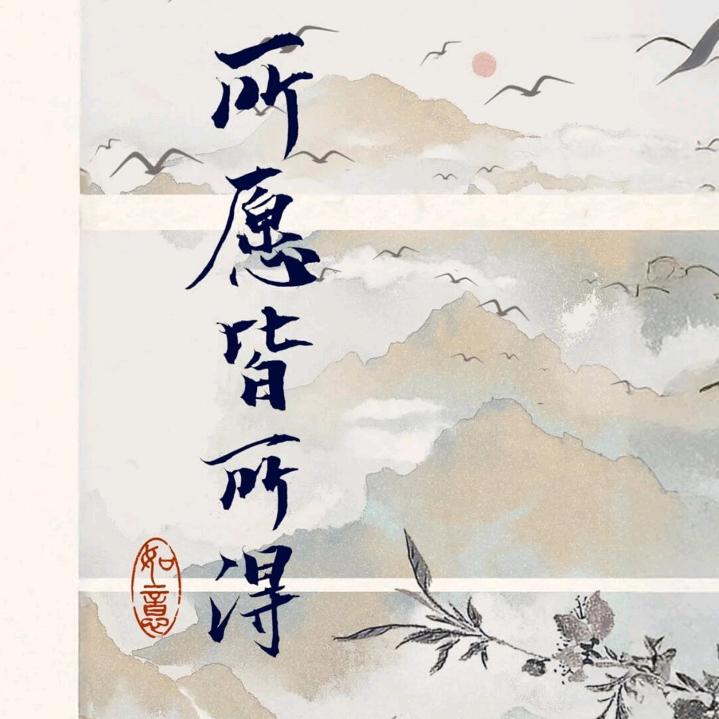 所愿皆所得
如意